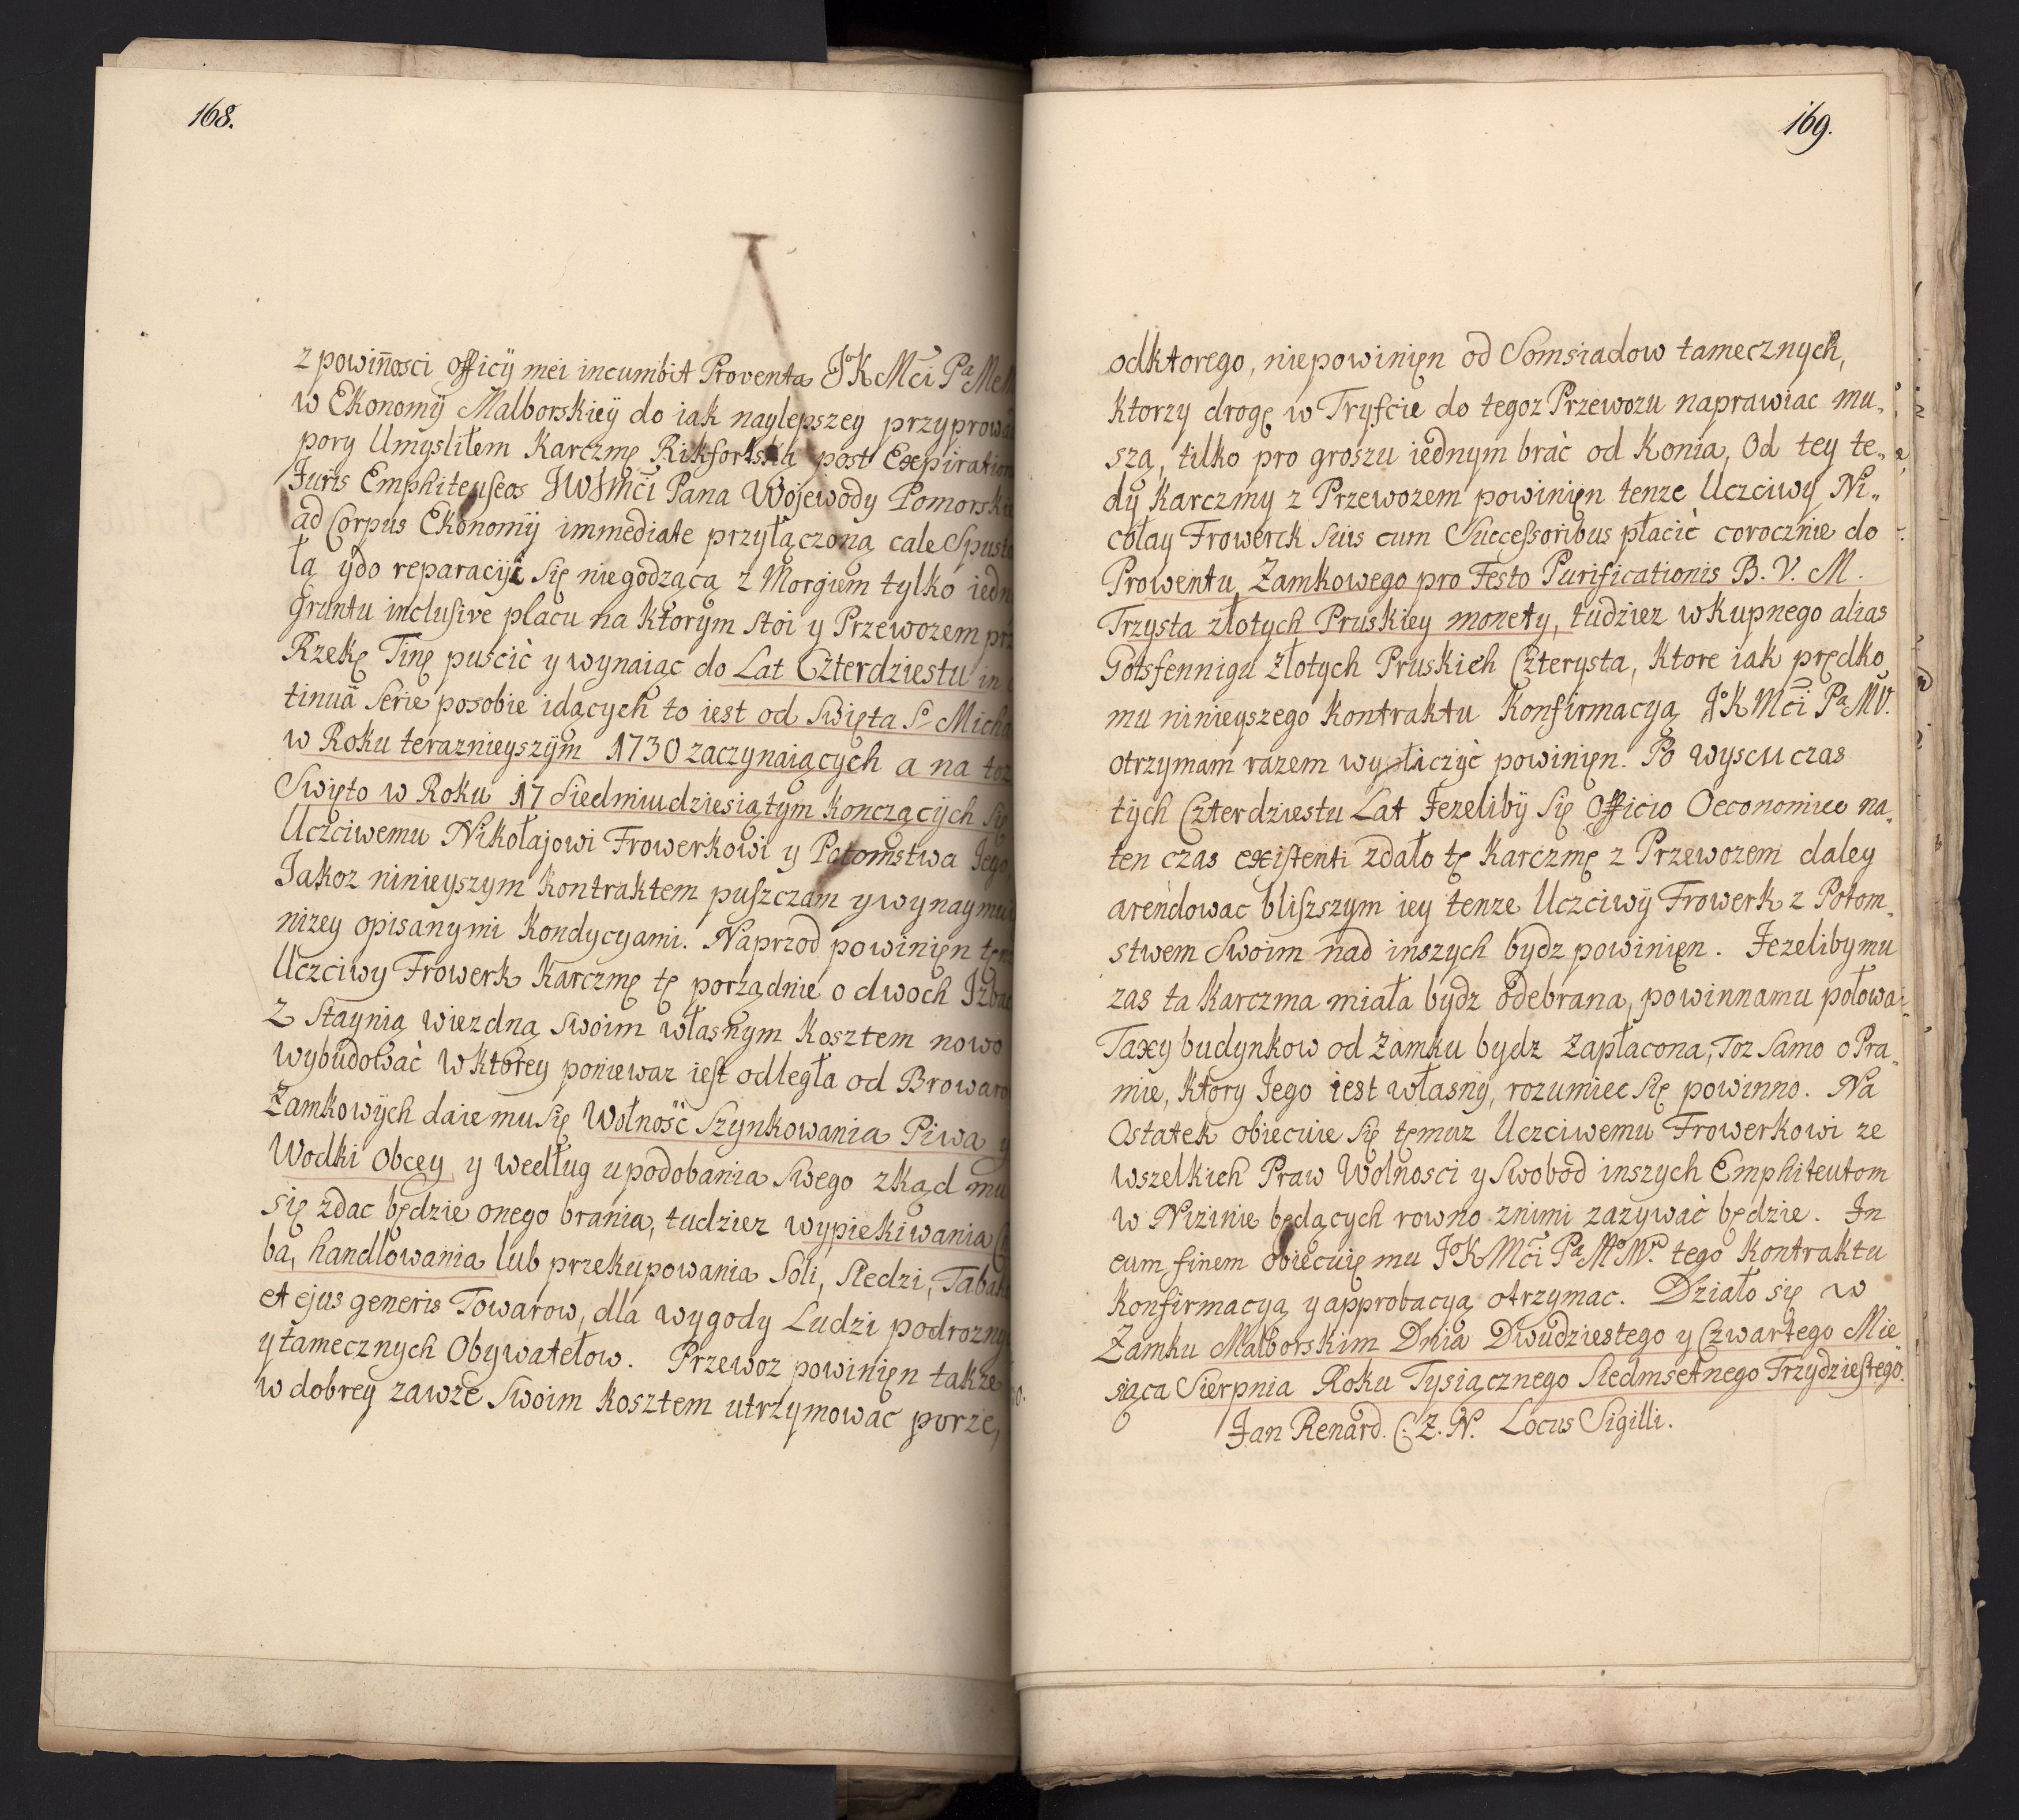 168.
z powiñosci officÿ mei incumbit Proventa JºK Mci Pª
w Ekonomÿ Malborskieÿ do iak naylepszey
pory Umysliłem Karczmę post
Juris Emphiteuseos JWJmci Pana Wojewody
ad Corpus Ekonomÿ immediate przyłączoną cale
łą ydo reparacÿi się niegodzącą z Morgiem tylko
gruntu inclusive placu na ktorym stoi y Przewozem
Rzekę Tinę puscić y wynaiąc do Lat Czterdziestu in
tinuâ Serie posobie idących to iest od Swięta Sº
w Roku teraznieyszÿm 1730 zaczynaiących a na
Swięto w Roku 17 Siedmiudziesiątym konczącÿch Się
Uczciwemu Nikołajowi Frowerkowi y Potomstwa Jego
Jakoz ninieyszym kontraktem puszczam y
nizey opisanymi Kondycyami. Naprzod powinięn
Uczciwy Frowerk Karczmę tę porządnie o dwoch
z Staynią wiezdną Swoim własnym kosztem nowo
wybudować w ktorey poniewaz iest odległa od
Zamkowÿch daie mu się Wolność Szynkowania Piwa y
Wodki obcey y według upodobania Swego zkąd mu
się zdac będzie onego brania, tudziez wypiekiwania
ba, handlowania lub przekupowania Soli, Sledzi,
et ejus generis Towarow, dla wygody Ludzi
y tamecznych Obywatelow. Przewoz powinięn takze
w dobrey zawze Swoim kosztem utrzymowac porze,
169.
odktorego, niepowinięn od Somsiadow tamecznych,
ktorzy drogę w Tryfcie do tegoz Przewozu naprawiac mu„
szą, tilko pro groszu iednym brać od Konia, Od tey te„
dÿ Karczmy z Przewozem powinięn tenze Uczciwy Ni„
cołay Frowerck Suis cum Successoribus płacić corocznie do
Prowentu Zamkowego pro Festo Purificationis B. V. M.
Trzysta złotych Pruskiey monety, tudziez wkupnego alias
Gotsfennigu złotych Pruskich Czterysta, ktore iak prędko
mu ninieyszego kontraktu Konfirmacyą JºK Mci Pª MV.
otrzymam razem wypłiczyć powinięn. Po wyscu czas
tÿch Czterdziestu Lat Jezelibÿ Się Officio Oeconomice na„
ten czas existenti zdało tę Karczmę z Przewozem daley
arendowac bliszszym iey tenze Uczciwÿ Frowerk z Potom„
stwem Swoim nad inszych bydz powinięn. Jezeliby mu
zas ta Karczma miała bydz odebrana, powinna mu połowa
Taxy budynkow od Zamku bydz zapłacona, Toz Samo o Pra„
mie, ktory Jego iest własny, rozumiec Się powinno. Na
Ostatek obiecuie Się tęmuz Uczciwemu Frowerkowi ze
wszelkich Praw Wolnosci y Swobod inszych Emphiteutom
w Nizinie będących rowno znimi zazywać będzie. In
eum finem obiecuię mu JºK Mci Pª MºWº tego Kontraktu
Konfirmacyą y approbacyą otrzymac. Działo się w
Zamku Malborskim Dnia Dwudziestego y Czwartego Mie
siąca Sierpnia Roku Tysiącznego Siedmsetnego Trzydziestego.
Jan Renard. C. Z. N. Locus Sigilli.